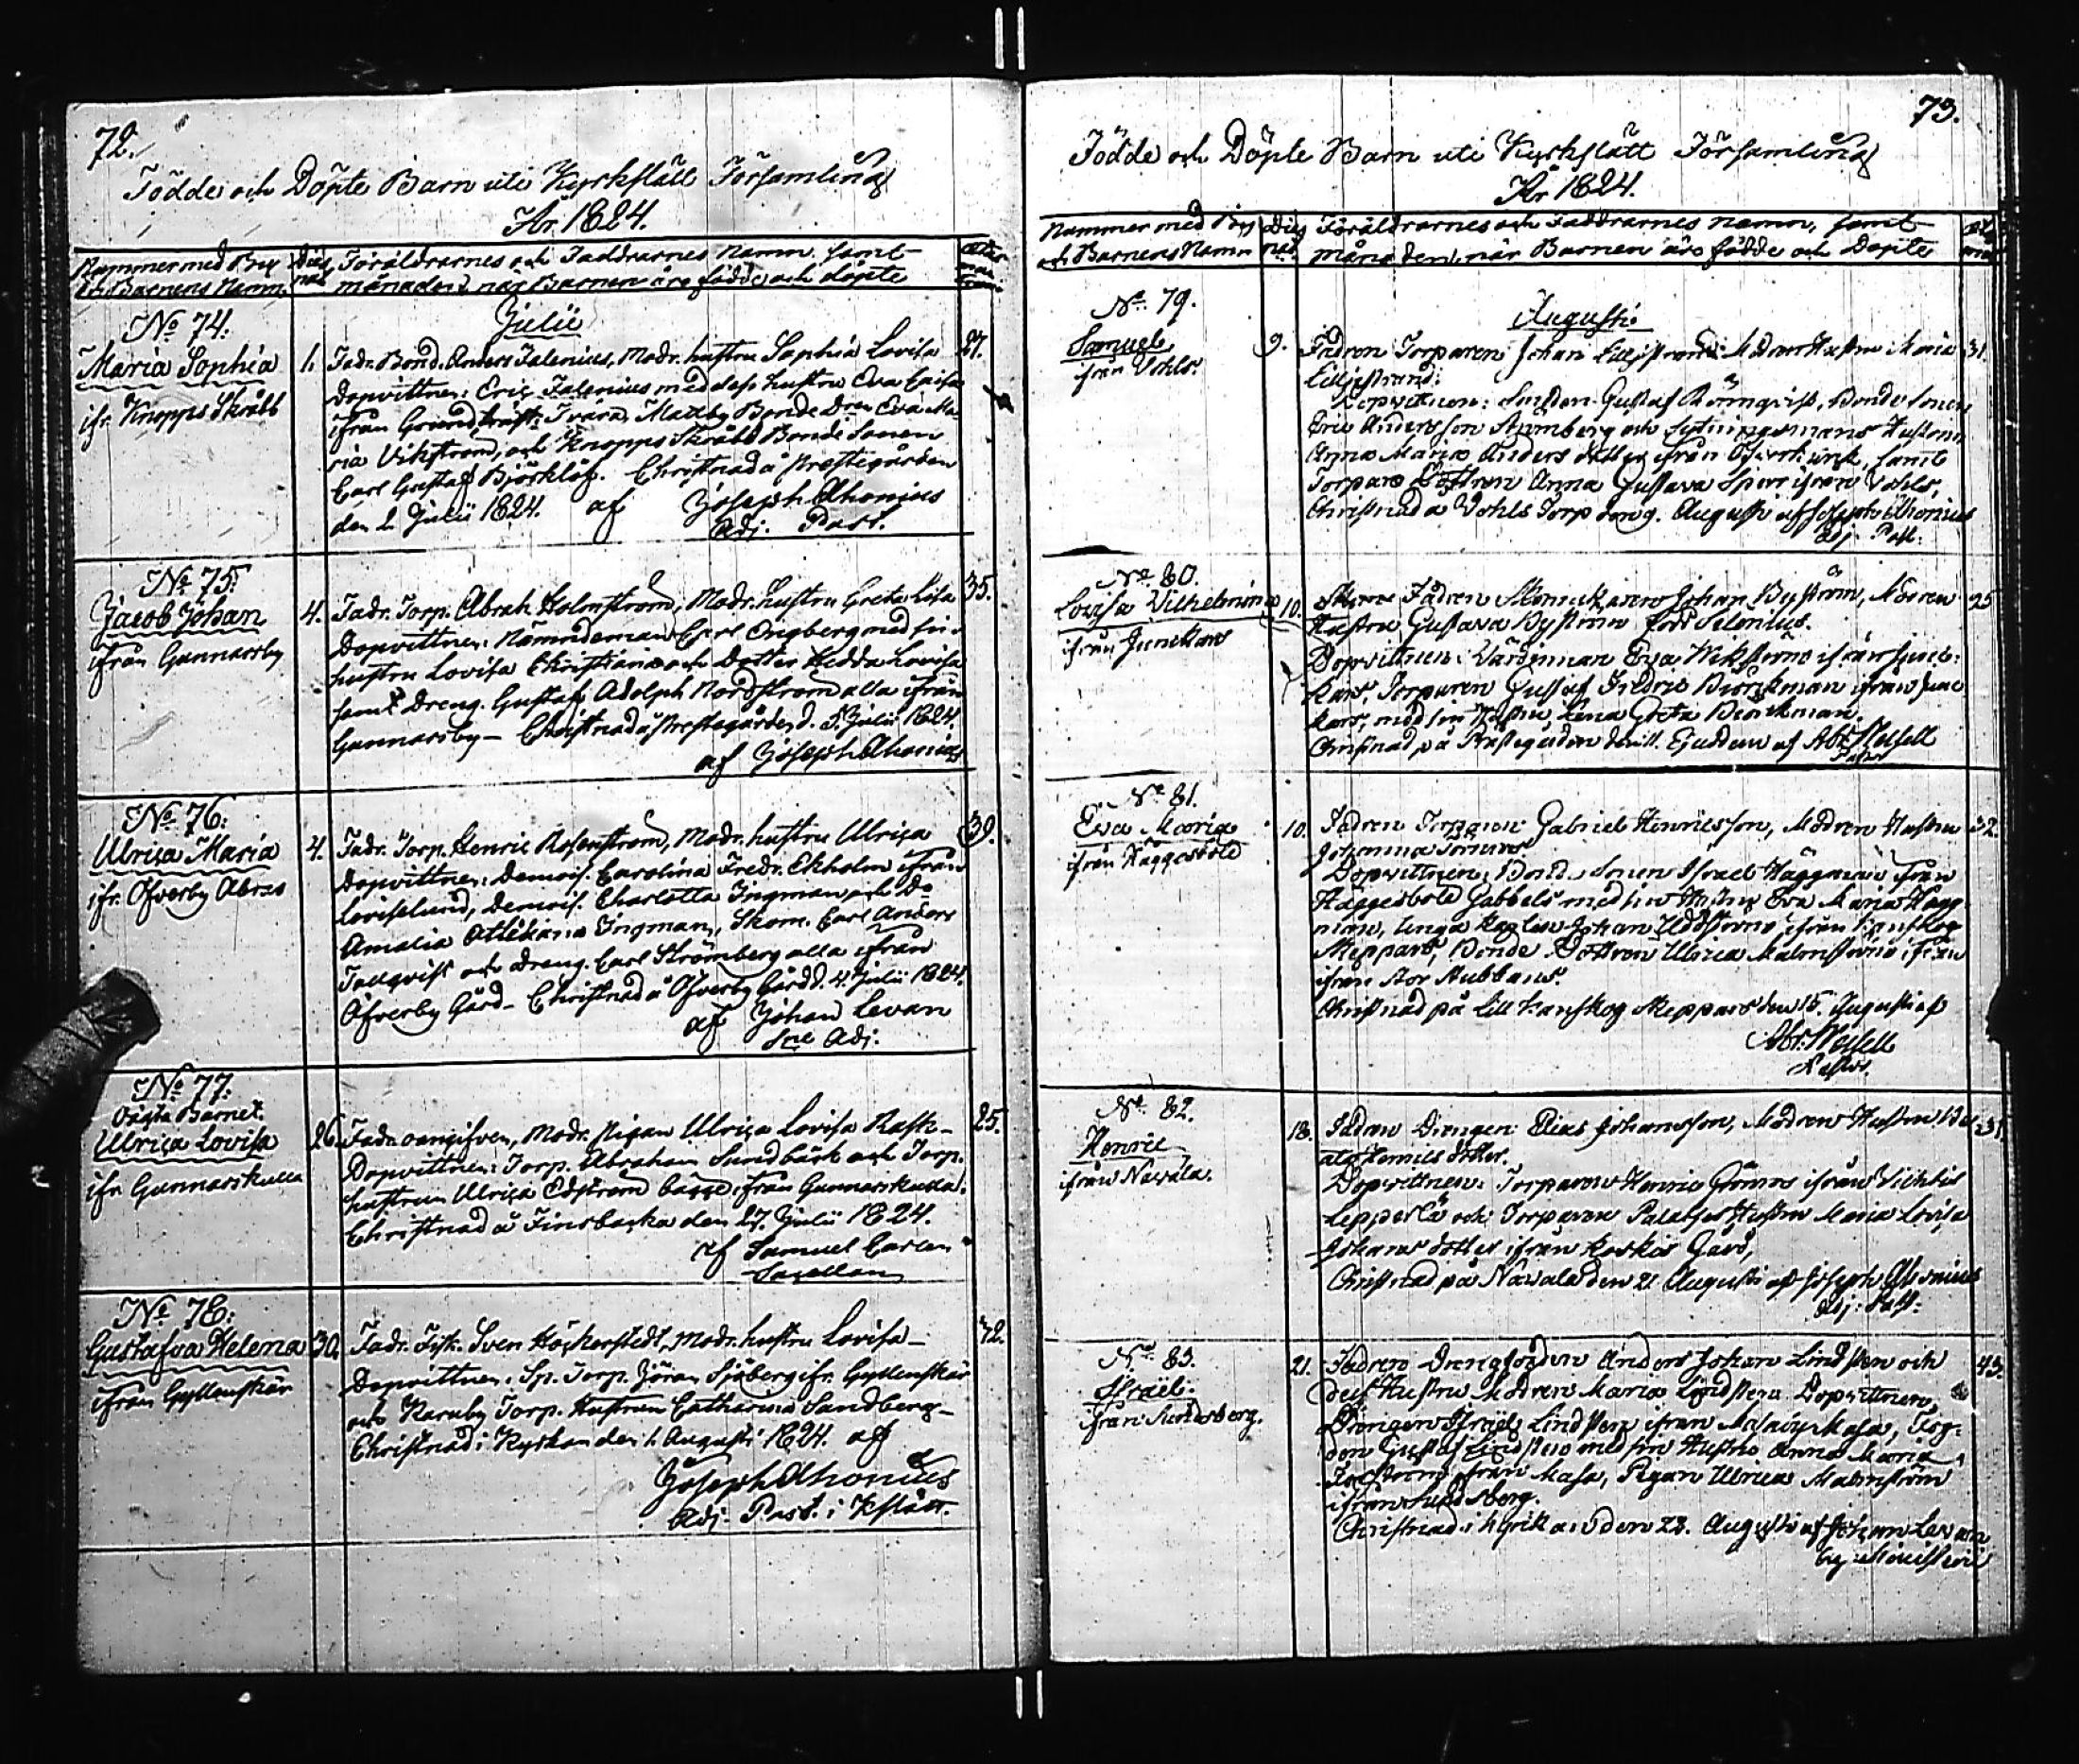 72.
Födde och Döpte Barn uti Kyrkslätt Församling
År 1824.
Nummer med By
och Barnens Namn.
Föräldrarnes och Faddrarnes namn, samt
månaden, när Barnen äro födde och döpte
Julii
No 74.
Maria Sophia
ifr. Knopps Skräbb
1.
Fadr. Bond. Anders Falenius, Modr. hustru Sophia Lovisa
Dopvittnen: Eric Falenius med dess hustru Eva Caisa
ifrån Grundträsk, Matkby Bonde Dren Eva Ma-
ria Vikstrom, och Knopps Skräbb Bonde Sonen
Carl Gustaf Björklöf. Christnad å Prestegården
den 2 Julii 1824. af Joseph Ahonius
Adj. Past.
27.
No 75.
Jacob Johan
ifrån Gunnarsby
4.
Fadr. Torp. Abrah. Holmstrom, Modr. hustru Greta Lisa
Dopvittnen: Nämndeman Carl Engberg med sin
hustru Lovisa Christiana och Dotter Hedda Lovisa
samt Dreng. Gustaf Adolph Nordstrom alla ifrån
Gunnarsby – Christnad å Prestegården d. 5. Julii 1824.
af Joseph Ahonius
35.
No 76.
Ulrica Maria
ifr. Öfverby Abras
4.
Fadr. Torp. Henric Rosenstrom, Modr. hustru Ulrica
Dopvittnen: Demois. Carolina Fredr. Ekholm ifrån
Loviselund, Demois. Charlotta Ingman och Do
Amalia Ottiliana Ingman, Skom. Carl Anders
Tallqvist och Dreng. Carl Strömberg alla ifrån
Öfverby Gård – Christnad å Öfverby Gård d. 4. Julii 1824.
af Johan Levan
Sac. Adj.
39.
No 77.
Oägta Barnet.
Ulrica Lovisa
ifr. Gunnarskulla
26.
Fadr. oangifven, Modr. Pigan Ulrica Lovisa Rask –
Dopvittnen: Torp. Abraham Sundbäck och Torp.
hustrun Ulrica Edstrom bägge ifrån Gunnarskulla.
Christnad å Finsbacka den 27. Julii 1824.
af Samuel Carlen
Sacellan
25.
No 78.
Gustafva Helena
ifrån Gyllenskär
30.
Fadr. Fisk. Sven Höckerstedt, Modr. hustru Lovisa –
Dopvittnen: Sp. Torp. Jöran Sjöberg ifr. Gyllenskär
och Karuby Torp. Hustrun Catharina Sandberg –
Christnad i Kyrkan den 1. Augusti 1824. af
Joseph Ahonius
Adj. Past. i Kslätt.
42.
73.
Födde och Döpte Barn uti Kyrkslätt Församling
År 1824.
Nummer med By
och Barnens Namn
Föräldrarnes och Faddrarnes namn, samt
månaden, när Barnen äro födde och Döpte
Augusti
No 79.
Samuel
från Vohls.
9.
Fadren Torparen Johan Liljestrand Modren Hustru Maria
Liljestrand:
Dopvittnen: Smeden Gustaf Rönnqvist, Bonde Sonen
Eric Andersson Strömberg och Hustrun
Anna Maria Anders dotter ifrån samt
Torpare Dottren Anna Gustava ifrån Vohls,
Christnad å Vohls Torp den 9. Augusti af Joseph Ahonius
Adj. Past.
31.
No 80.
Lovisa Vilhelmina
ifrån Junckars
10.
Fadren Skomakaren Johan Byström, Modren
Hustru Gustava Byström född Selenius.
Dopvittnen: Värdinnan Eva Wikström ifrån Junc-
kars, Torparen Gustaf Fredric Björckman ifrån Junc
kars, med sin Hustru Lena Greta Björckman.
Christnad på Prästegården den 11. Ejusdem af Abr. Wessell
Pastor
25
No 81.
Eva Maria
ifrån Häggesböle
10.
Fadren Torparen Gabriel Henricsson, Modren Hustru
Johanna
Dopvittnen: Bonde Sonen Israel Häggman ifrån
Häggesböle Gabbels med sin Hustru Eva Maria Hägg
man, unga Johan Uddström ifrån
Skeppars, Bonde Dottren Ulrica Malmström ifrån
ifrån Stor Hubbans.
Christnad på Lill Kanskog Skeppars den 15. Augusti af
Abr. Wessell
Pastor.
32.
No 82.
Henric
ifrån Navala.
18.
Fadren Drengen Elias Johansson, Modren Hustru
Henrics dotter.
Dopvittnen: Torparen Henric ifrån
Lepperlä och Torparen Hustru Maria Lovisa
Johans dotter ifrån Koskis Gård,
Christnad på Navala den 21 Augusti af Joseph Ahonius
Adj. Past.
31
No 83.
Israël.
från Sundsberg.
21.
Fadren Drengfogden Anders Johan Lindsten och
dess Hustru Modren Maria Lindsten. Dopvittnen,
Drengen Israël Lindsten ifrån Masaby Masa, Fog-
den Gustaf Lindsten med sin Hustru Anna Maria
ifrån Masa, Pigan Ulrica Malmström
ifrån Sundsberg.
Christnad i Kyrkan den 23. Augusti af Johan Levan
43.